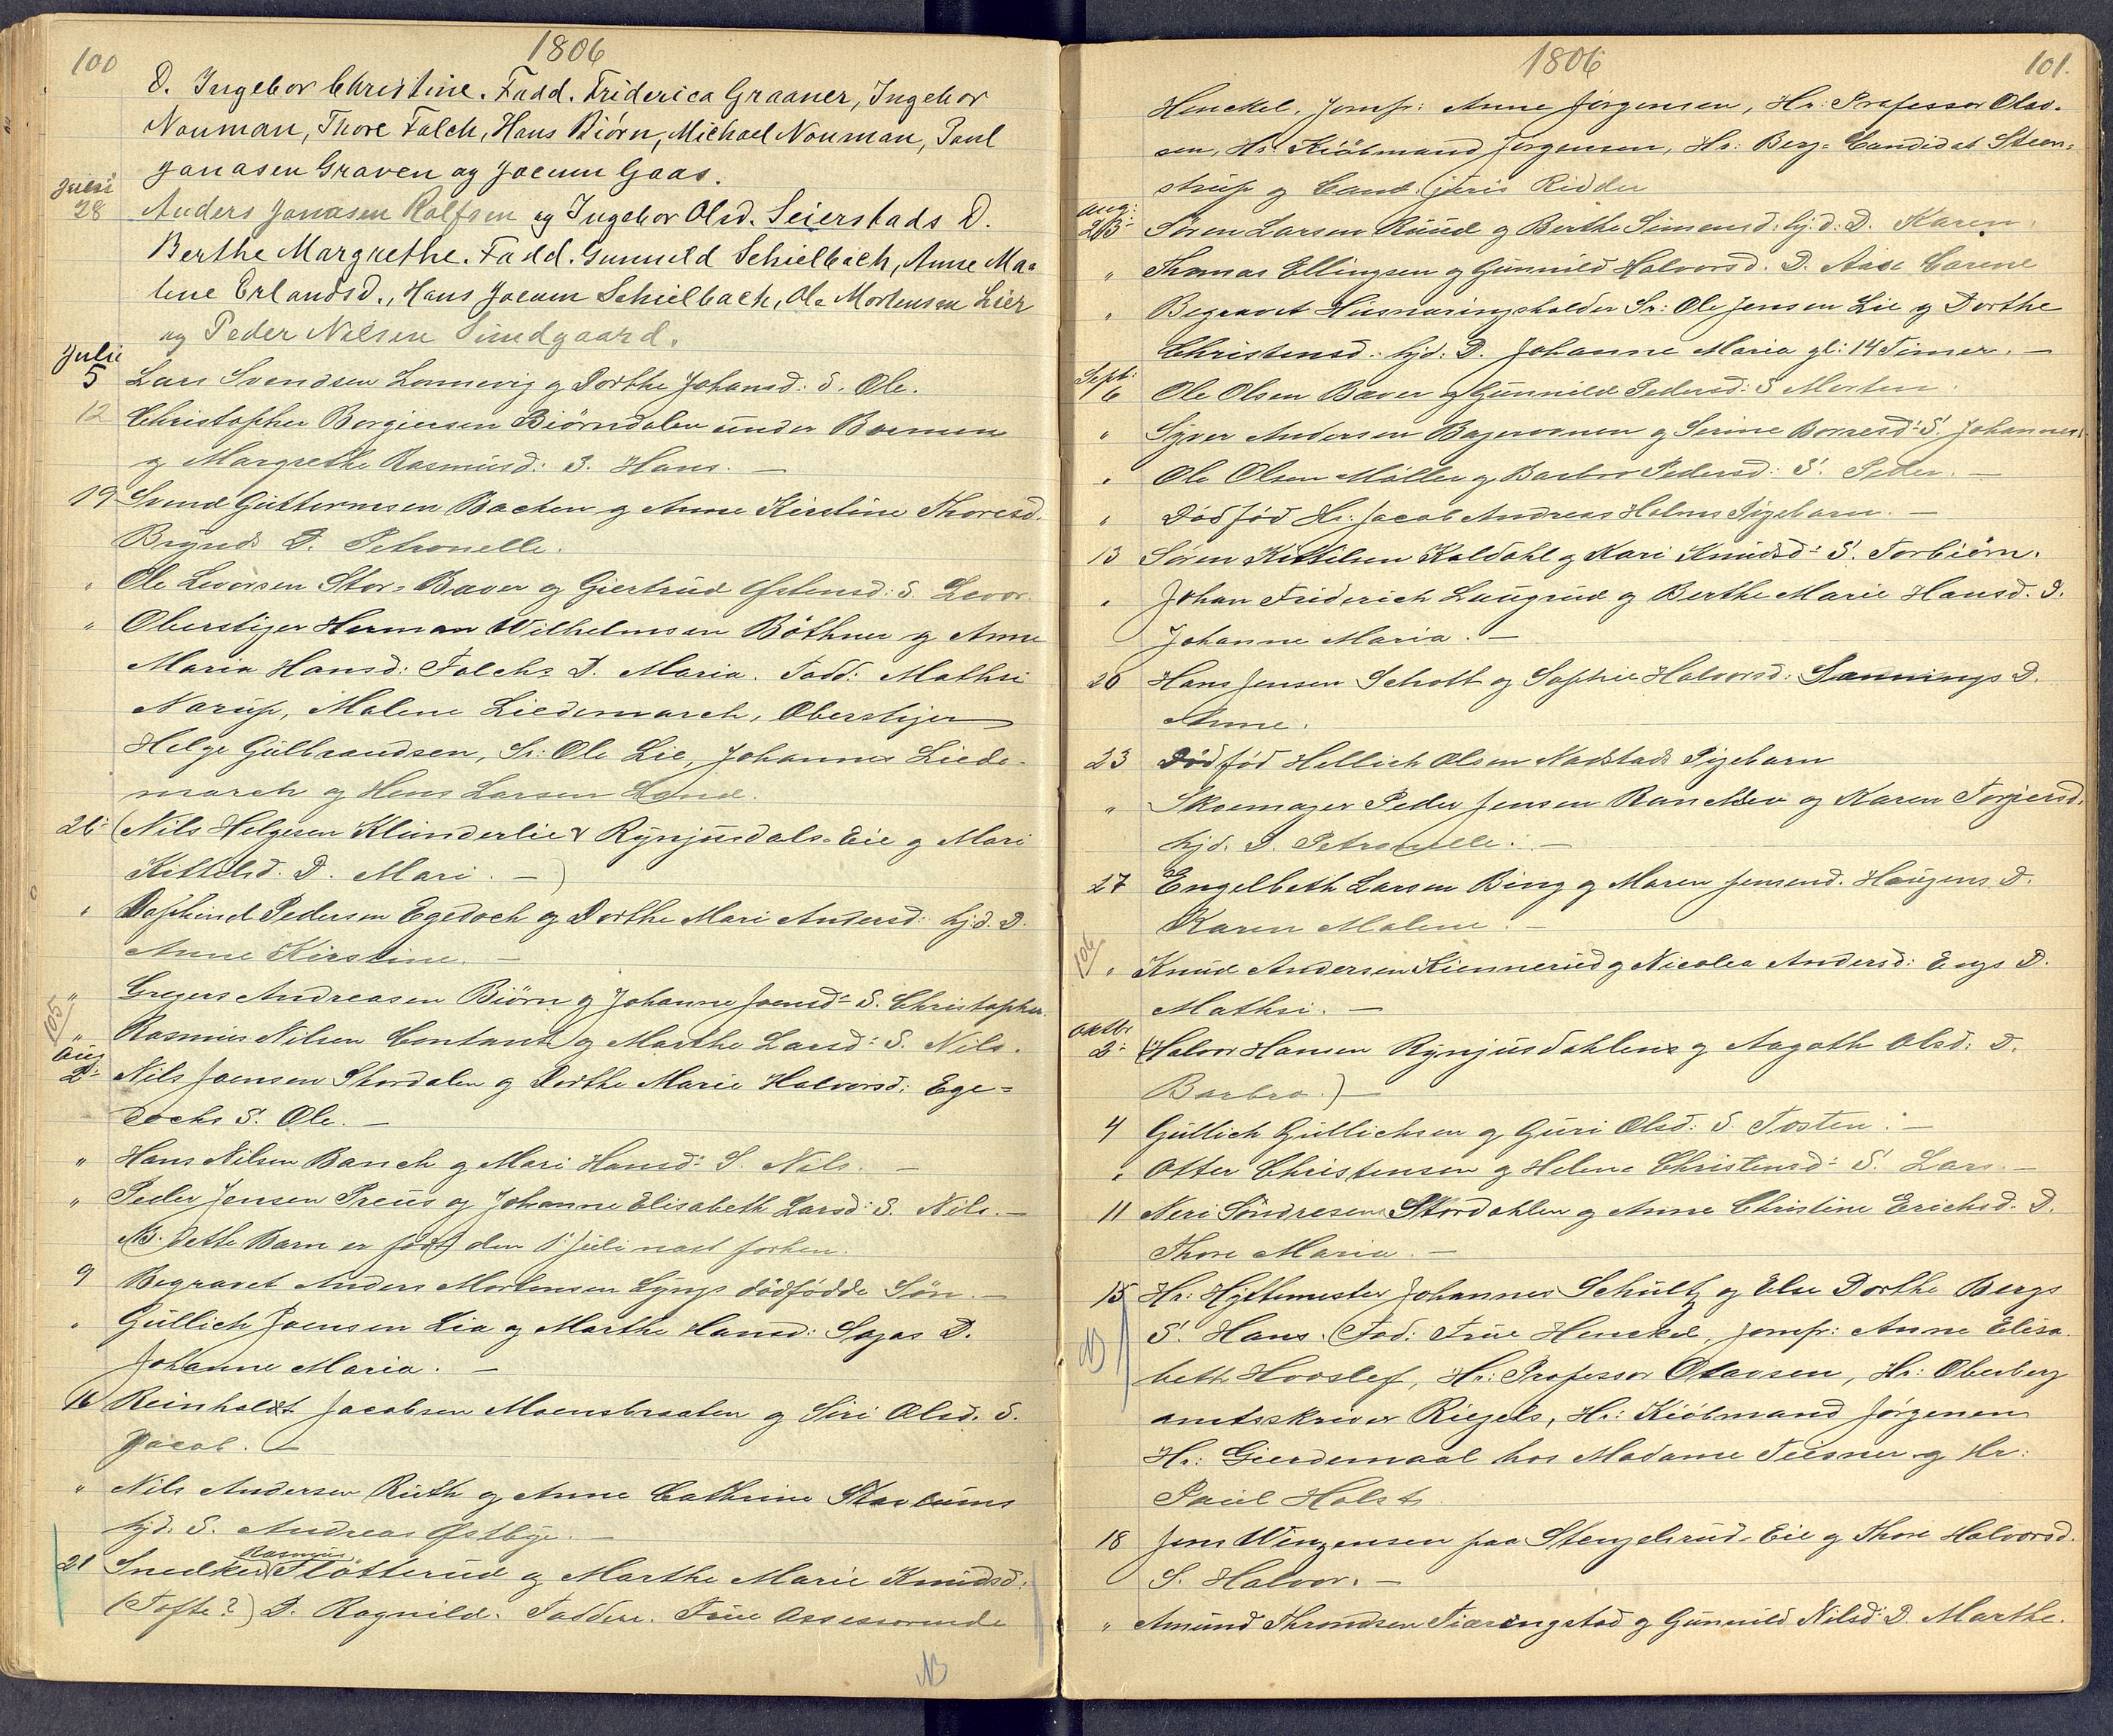 100
1806
D. Ingebor Christine. Fadd. Friderica Graaner, Ingebor
Nouman, Thore Falch, Hans Biørn, Michael Nouman, Poul
Jonasen Graven og Jocum Gaas.
Juni
28 Anders Jonasen Rolfsen og Ingebor Olsd. Seierstads D.
Berthe Margrethe. Fadd. Gunnild Schielbach, Anne Ma=
lene Erlandsd., Hans Jocum Schielbach, Ole Mortensen Lier
og Peder Nilsen Sundgaard.
Julii
5 Lars Svendsen Lonnevig g Dorthe Johansd: S. Ole.
12 Christopher Borgiersen Biörndalen under Boemen
g Margrethe Rasmusd: S. Hans. —
19 Svend Guttormsen Bachen g Anne Kirstine Thoresd.
Brynds D. Petronelle.
" Ole Levorsen Stor=Baver og Giertrud Østensd: S. Levor
" Oberstiger Herman Wilhelmsen Böthner g Anne
Maria Hansd: Falchs D. Maria. Fadd: Mathsi
Narup, Malene Liedemarch, Oberstiger
Helge Gulbrandsen, Sr: Ole Lie, Johannes Liede-
march og Hans Larsen Lend.
26 (Nils Helgesen Klunderlie Rynjusdals-Eie g Mari
Kittelsd. D. Mari. —)
" Daphind Pedersen Egedoch og Dorthe Mari Andersd: hj.d. D.
Anne Kirstine. —
" Gregers Andreasen Biörn g Johanne Joensd: S. Christopher.
105
" Rasmus Nilsen Contant g Marthe Larsd: S. Nils.
Aug
2: Nils Joensen Stordalen g Dorthe Marie Halvorsd: Ege=
dochs S. Ole. —
" Hans Nilsen Banch g Mari Hansd: S. Nils. —
" Peder Jensen Preus og Johanne Elisabeth Larsd: S. Nils. —
NB. Dette Barn er født den 1' Juli næst forhen.
9 Begravet Anders Mortensen Lyngs dødfødde Søn. —
" Gullich Joensen Lia g Marthe Hansd: Sagas D.
Johanne Maria. —
16 Reinholdt Jacobsen Moensbraaten g Siri Olsd. S.
Jacob. —
" Nils Andersen Ruth og Anne Cathrine Starlums
hjd. S. Andreas Østbye. —
Rasmus
21 Snedker Fløtterud og Marthe Marie Knudsd.
(Tofte?) D. Ragnild. Faddere. Frue Assessorinde
NB
1806
101.
Henckel, Jomfr: Anne Jörgensen, Hr: Professor Olav-
sen, Hr: Kiöbmand Jørgensen, Hr: Berg-Candidat Steen=
strup g Cand. juris Ridder
Aug:
23 Sören Larsen Ruud g Berthe Simensd: hj.d: D. Karen.
" Thomas Ellingsen g Gunnild Halvorsd. D. Aase Carene
" Begravet Husnæringsholder Sr: Ole Jensen Lie g Dorthe
Christensd. hjd: D. Johanne Maria gl: 14 Timer. —
Sept:
6 Ole Olsen Baver g Gunnild Pedersd: S Morten.
" Syver Andersen Bageronnen g Serine Borresd: S. Johannes.
" Ole Olsen Møller g Barbro Pedersd: S. Peder. —
" Dødfød Hr: Jacob Andreas Holms Pigebarn. —
13 Sören Kittilsen Kaldahl g Kari Knudsd: S. Torbiörn.
" Johan Friderich Laugrud g Berthe Marie Hansd. D.
Johanne Maria. —
20 Hans Jensen Schott g Sophie Halvorsd: Sannings D.
Anne.
23 Dødfød Hellich Olsen Nadstads Pigebarn
" Skoemager Peder Jensen Ranchev og Karen Torgiersd.
hjd. D. Petronelle. —
27 Engelbeth Larsen Bing g Maren Jensend. Haugens D.
Karen Malene. —
106
" Knud Andersen Kiennerud g Nicolea Andersd: Engs D.
Mathsi. —
Oktbr
2: (Halvor Hansen Rynjusdahlen g Aagoth Olsd: D.
Barbro.) —
4 Gullich Gullichsen g Guri Olsd: S. Tosten. —
" Otter Christensen g Helene Christensd: S. Lars. —
11 Neri Söndresen Stordahlen g Anne Christine Erichsd. D.
Thore Maria. —
15 Hr: Hyttemester Johannes Schultz og Else Dorthe Bergs
NB
S. Hans. Fad: Frue Henckel, Jomfr: Anne Elisa
beth Hooslef, Hr: Professor Olavsen, Hr: Oberberg
amtsskriver Riegels, Hr: Kiöbmand Jørgensen
Hr: Gierdemaal hos Madame Teisner g Hr:
Paul Holst.
18 Jens Wingensen paa Stengelsrud-Eie g Thore Halvorsd.
S. Halvor. —
" Amund Throndsen Tiæringstad g Gunnild Nilsd: D. Marthe.